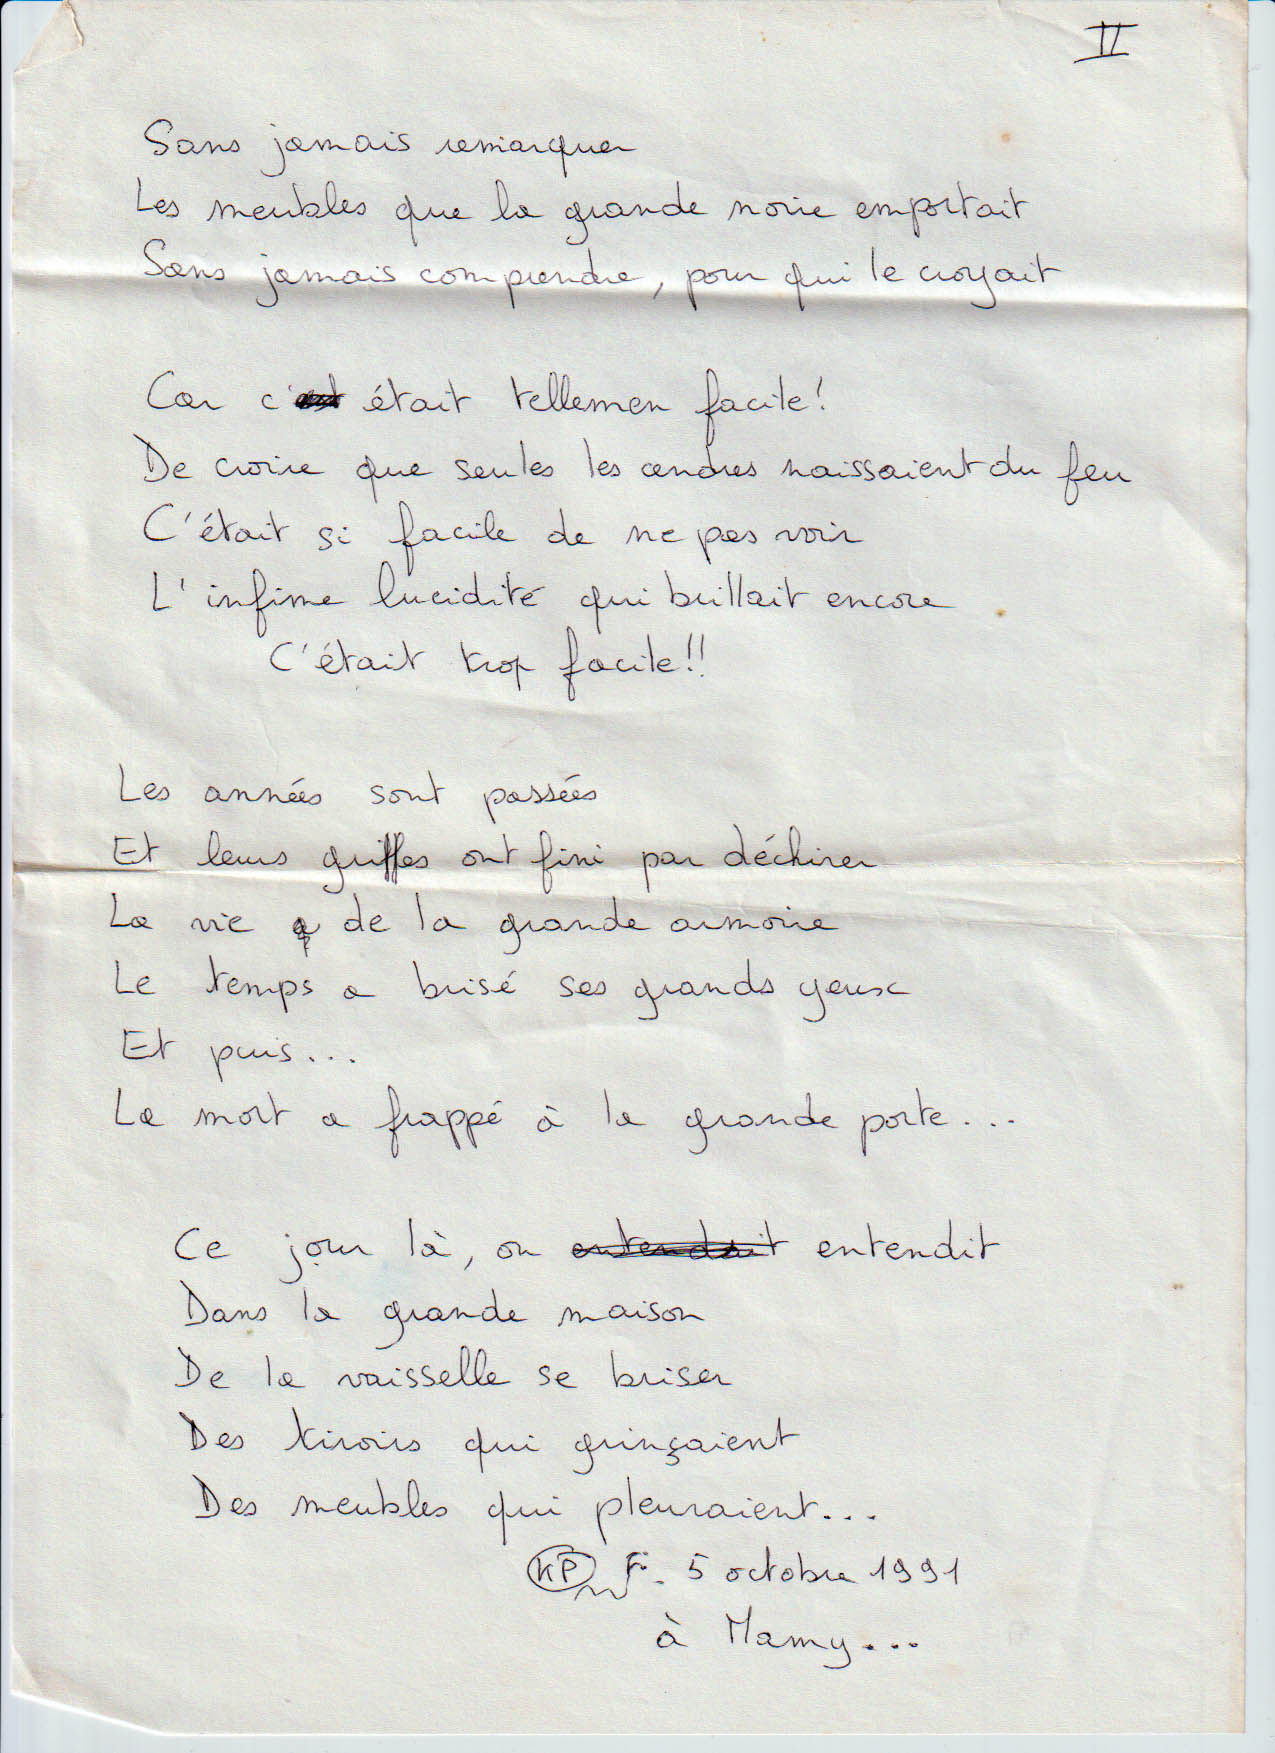 II
Sans jamais remarquer
Les meubles que la grande noire emportait
Sans jamais comprendre, pour qui le croyait
Car c'est était tellemen facile!
De croire que seules les cendres naissaient du feu
C'était si facile de ne pas voir
L'infime lucidité qui brillait encore
C'était trop facile!!
Les années sont passées
Et leurs griffes ont fini par déchirer
La vie q de la grande armoire
Le temps a brisé ses grands yeux
Et puis...
La mort a frappé à la grande porte...
Ce jour là, on entendait entendit
Dans la grande maison
De la vaisselle se briser
Des tiroirs qui grinçaient
Des meubles qui pleuraient...
KP F. 5 octobre 1991
à Mamy...